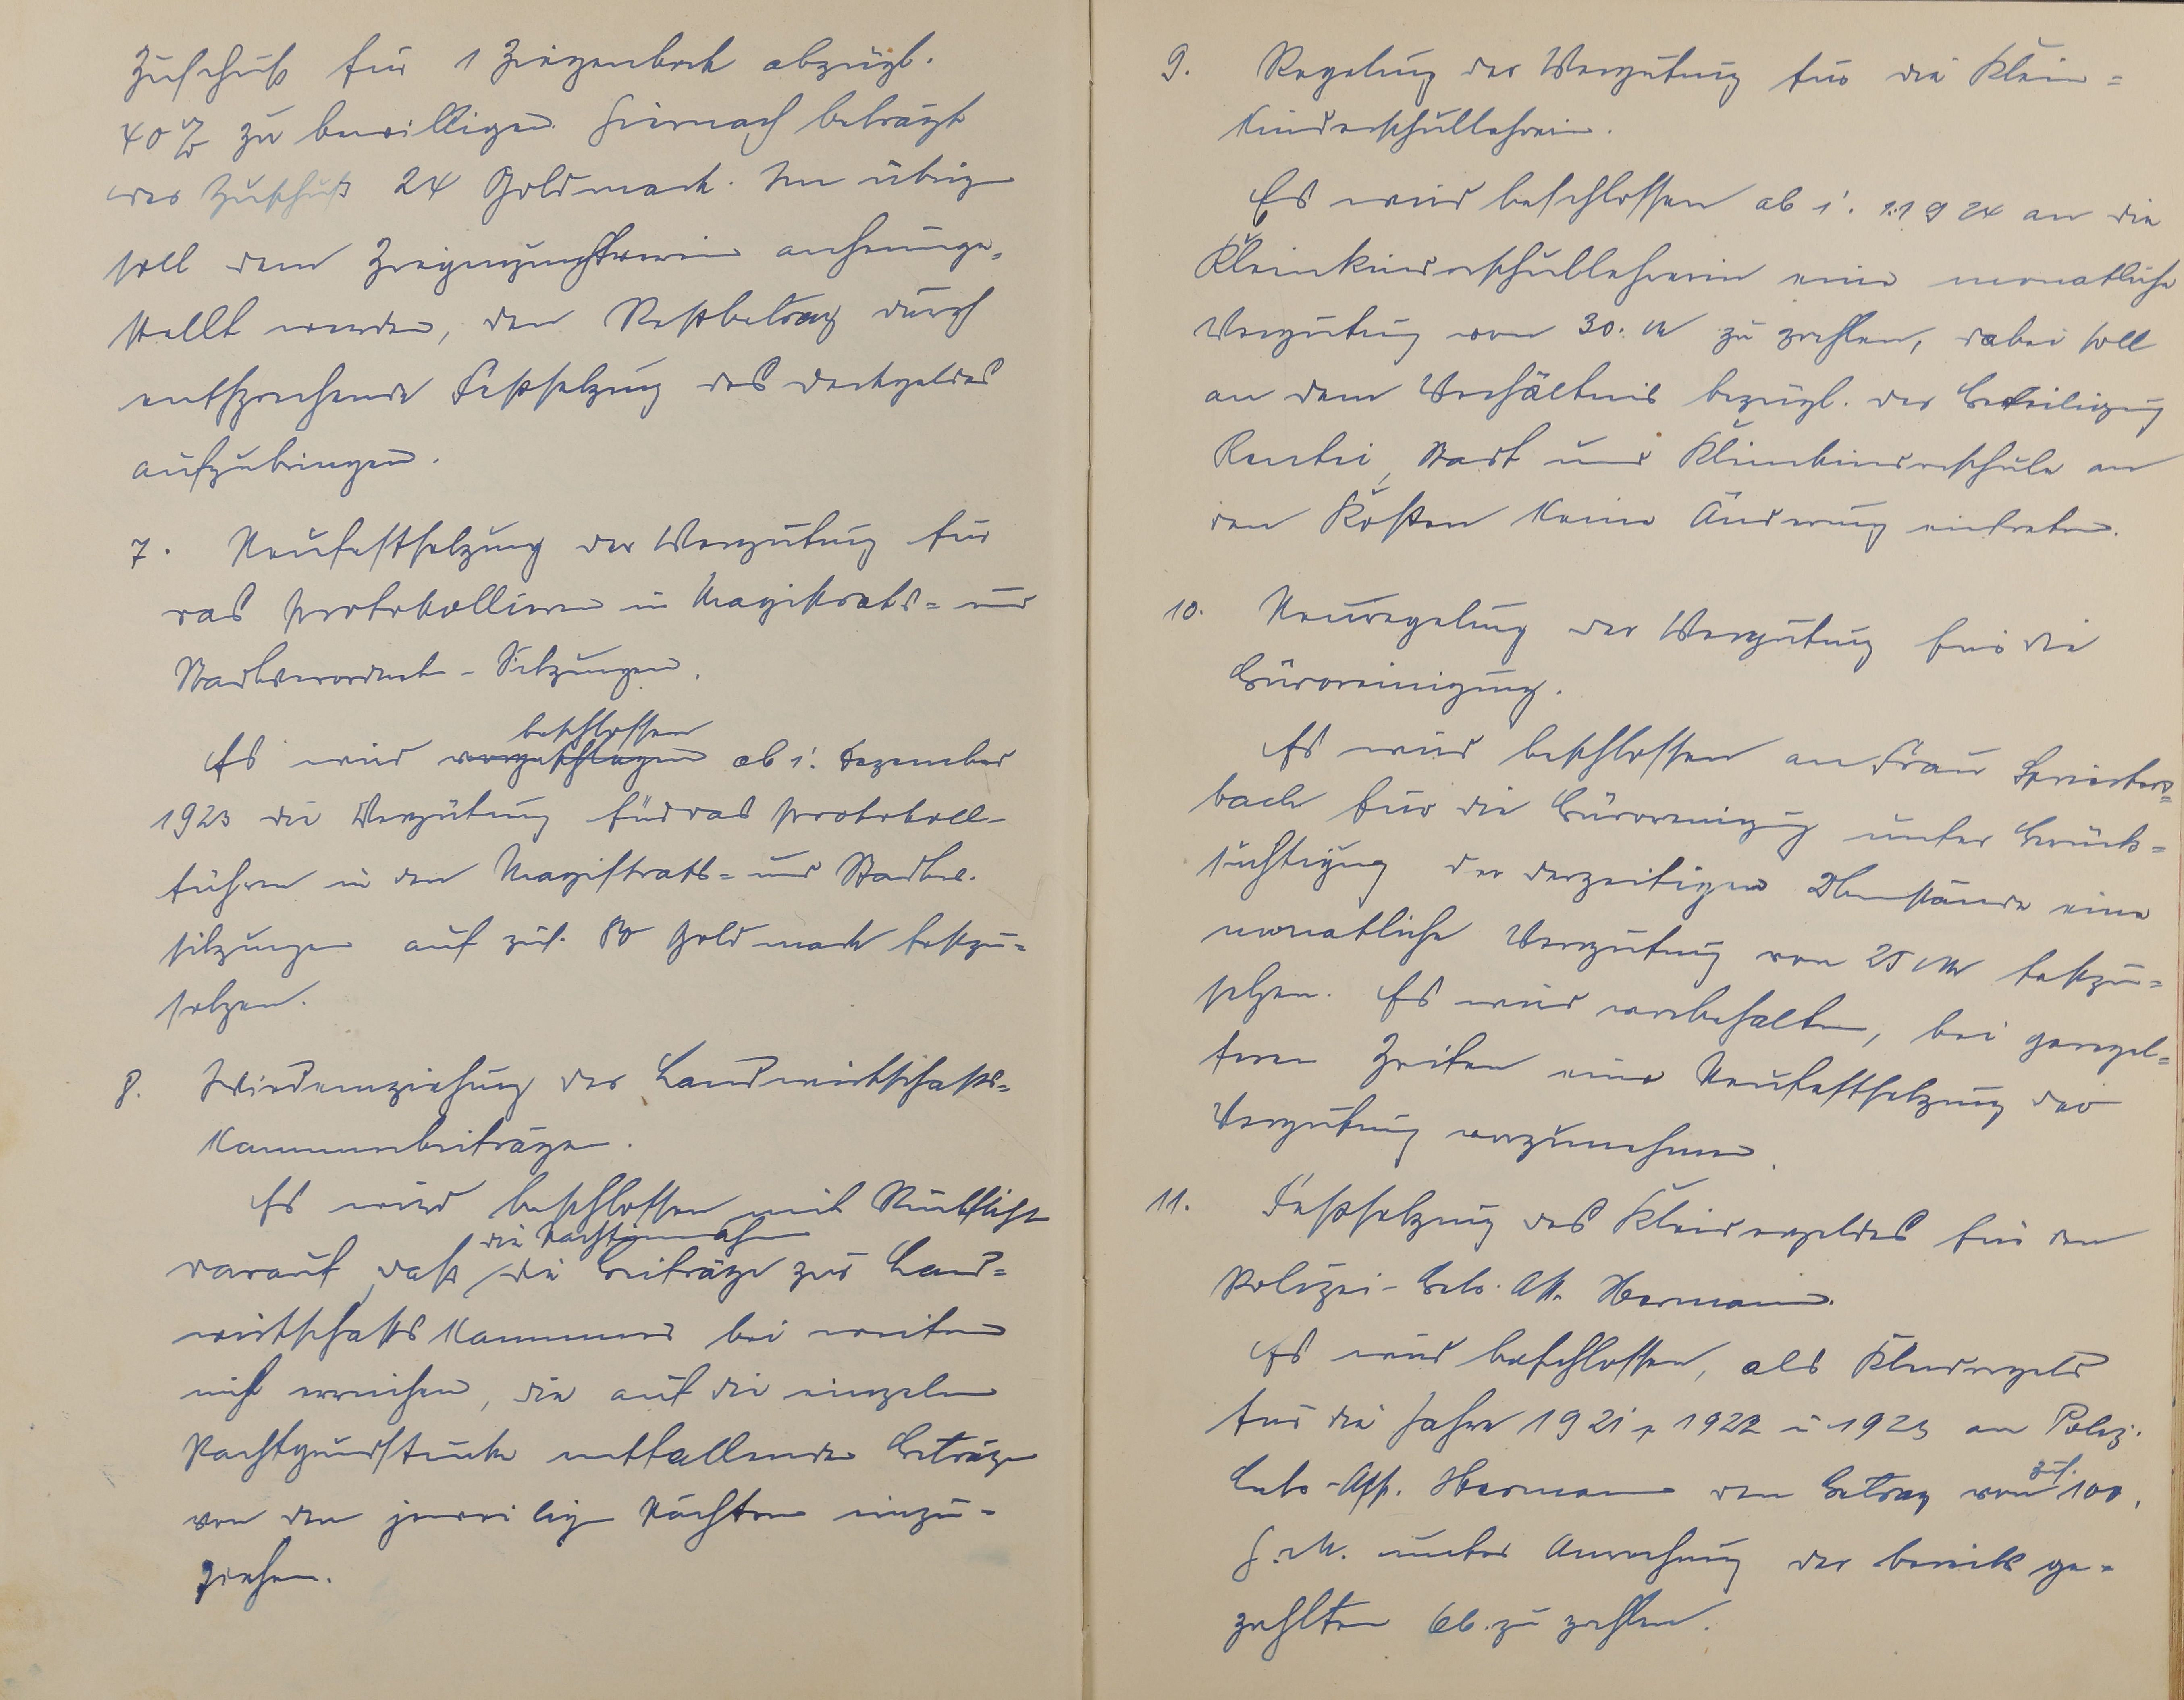 Zuschuß für 1 Ziegenbock abzügl.
40% zu bewilligen. Hiernach beträgt
der Zuschuß 24 Goldmark. Im übrig
soll dem Ziegenzuchtverein anheimge-
stellt werden, den Restbetrag durch
entsprechende Festsetzung des Deckgeldes
aufzubringen.
7. Neufestsetzung der Vergütung für
das Protokollieren in Magistrats- und
Stadtverordnete-Sitzungen.
beschlossen
Es wird vorgeschlagen ab 1. Dezember
1923 die Vergütung für das Protokoll-
führen in den Magistrats- und Stadtv.
sitzungen auf zus. 80 Goldmark festzu-
setzen.
8. Wiedereinziehung der Landwirtschafts-
kammerbeiträge.
Es wird beschlossen mit Rücksicht
die Pachteinnahmen
darauf, daß die Beiträge zur Land-
wirtschaftskammer bei weitem
nicht erreichen, die auf die einzelnen
Pachtgrundstücke entfallenden Beträge
von den jeweilig Pächtern einzu-
ziehen.
9. Regelung der Vergütung für die Klein-
kinderschullehrerin.
Es wird beschlossen ab 1. 1. 1924 an die
Kleinkinderschullehrerin eine monatliche
Vergütung von 30. M zu zahlen, dabei soll
an dem Verhältnis bezügl. der Beteiligung
Rentei, Stadt und Kleinkinderschule an
den Kosten keine Änderung eintreten.
10. Neuregelung der Vergütung für die
Büroreinigung.
Es wird beschlossen an Frau
bach für die Büroreinigung unter Berück-
sichtigung der derzeitigen Umstände eine
monatliche Vergütung von 25 M festzu-
setzen. Es wird vorbehalten, bei geregel-
teren Zeiten eine Neufestsetzung der
Vergütung vorzunehmen.
11. Festsetzung des Kleidergeldes für den
Polizei-Betr. Ass. Hermann.
Es wird beschlossen, als Kleidergeld
für die Jahre 1921, 1922 u 1923 an Poliz.
zus.
Betr-Ass. Hermann den Betrag von 100.
G.M. unter Anrechnung der bereits ge-
zahlten zu zahlen.